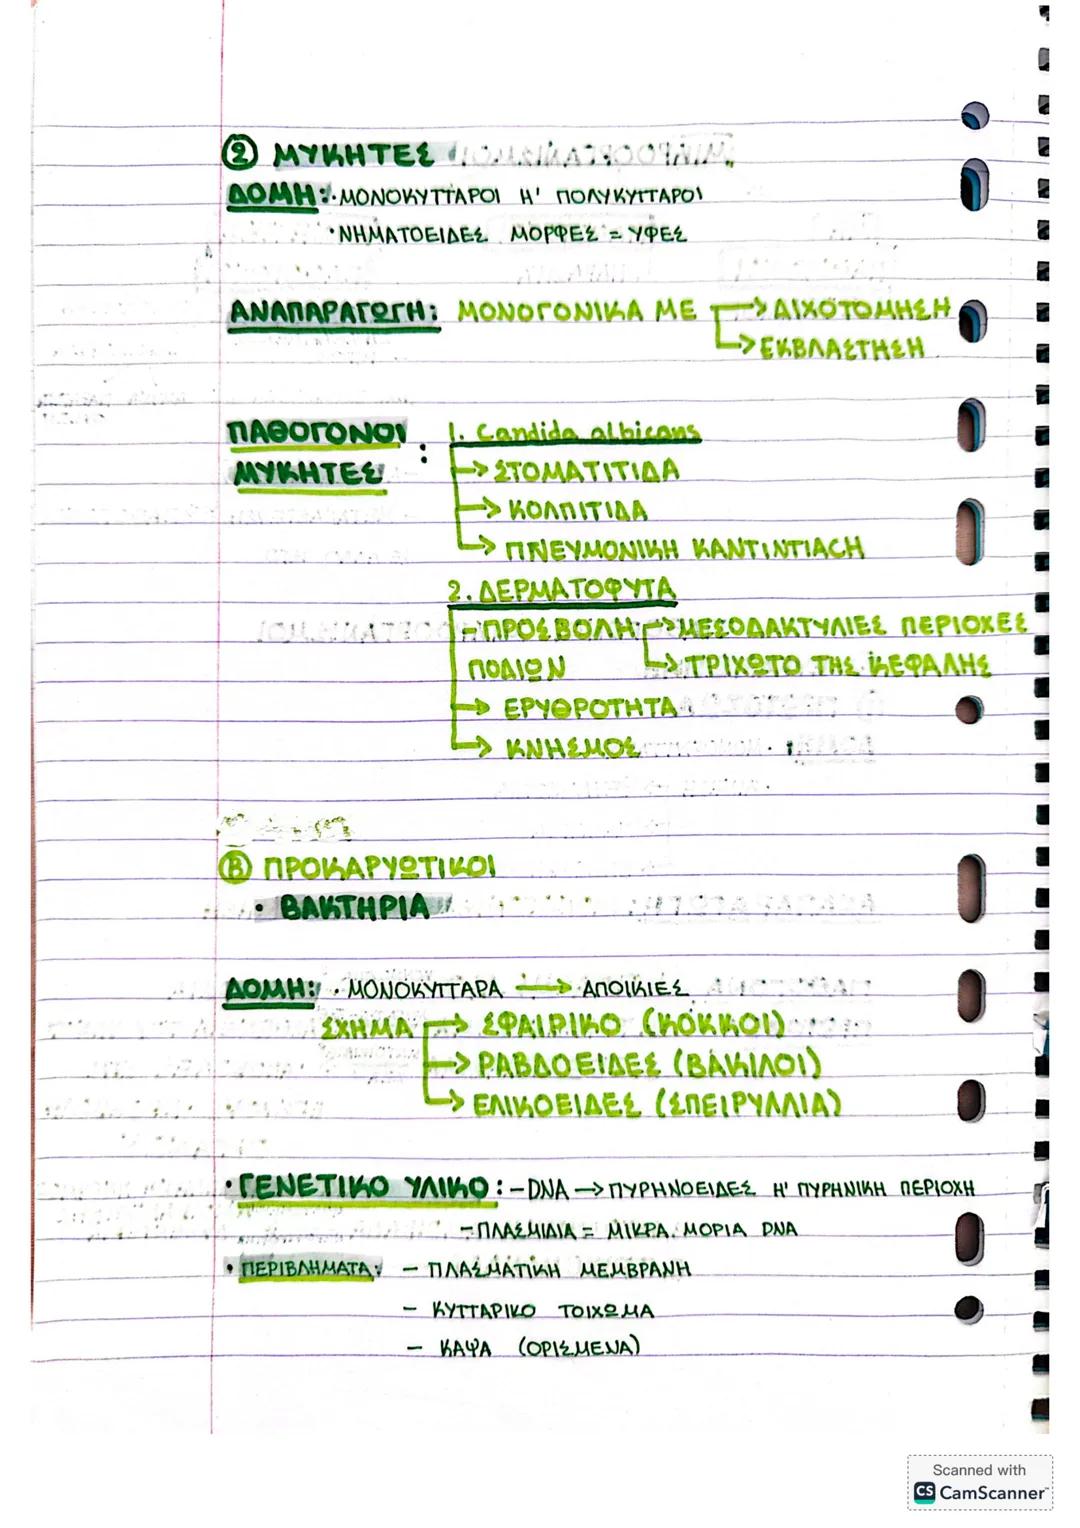 ② ΜΥΚΗΤΕΣ
ΔΟΜΗ: · ΜΟΝΟΚΥΤΤΑΡΟΙ Η' ΠΟΛΥΚΥΤΤΑΡΟΙ
· ΝΗΜΑΤΟΕΙΔΕΣ ΜΟΡΦΕΣ = ΥΦΕΣ
ΑΝΑΠΑΡΑΓΩΓΗ: ΜΟΝΟΓΟΝΙΚΑ ΜΕ → ΔΙΧΟΤΟΜΗΣΗ
→ ΕΚΒΛΑΣΤΗΣΗ
ΠΑΘΟΓΟΝΟΙ ΜΥΚΗΤΕΣ :
1. Candida albicans
→ ΣΤΟΜΑΤΙΤΙΔΑ
→ ΚΟΛΠΙΤΙΔΑ
→ ΠΝΕΥΜΟΝΙΚΗ ΚΑΝΤΙΝΤΙΑΣΗ
2. ΔΕΡΜΑΤΟΦΥΤΑ
- ΠΡΟΣΒΟΛΗ: → ΜΕΣΟΔΑΚΤΥΛΙΕΣ ΠΕΡΙΟΧΕΣ
ΠΟΔΙΩΝ → ΤΡΙΧΩΤΟ ΤΗΣ ΚΕΦΑΛΗΣ
→ ΕΡΥΘΡΟΤΗΤΑ
→ ΚΝΗΣΜΟΣ
Ⓑ ΠΡΟΚΑΡΥΩΤΙΚΟΙ
· ΒΑΚΤΗΡΙΑ
ΔΟΜΗ: · ΜΟΝΟΚΥΤΤΑΡΑ → ΑΠΟΙΚΙΕΣ
ΣΧΗΜΑ → ΣΦΑΙΡΙΚΟ (ΚΟΚΚΟΙ)
→ ΡΑΒΔΟΕΙΔΕΣ (ΒΑΚΙΛΟΙ)
→ ΕΛΙΚΟΕΙΔΕΣ (ΣΠΕΙΡΥΛΛΙΑ)
· ΓΕΝΕΤΙΚΟ ΥΛΙΚΟ: - DNA → ΠΥΡΗΝΟΕΙΔΕΣ Η' ΠΥΡΗΝΙΚΗ ΠΕΡΙΟΧΗ
- ΠΛΑΣΜΙΔΙΑ = ΜΙΚΡΑ ΜΟΡΙΑ DNA
· ΠΕΡΙΒΛΗΜΑΤΑ: - ΠΛΑΣΜΑΤΙΚΗ ΜΕΜΒΡΑΝΗ
- ΚΥΤΤΑΡΙΚΟ ΤΟΙΧΩΜΑ
- ΚΑΨΑ (ΟΡΙΣΜΕΝΑ)
Scanned with
CS CamScanner